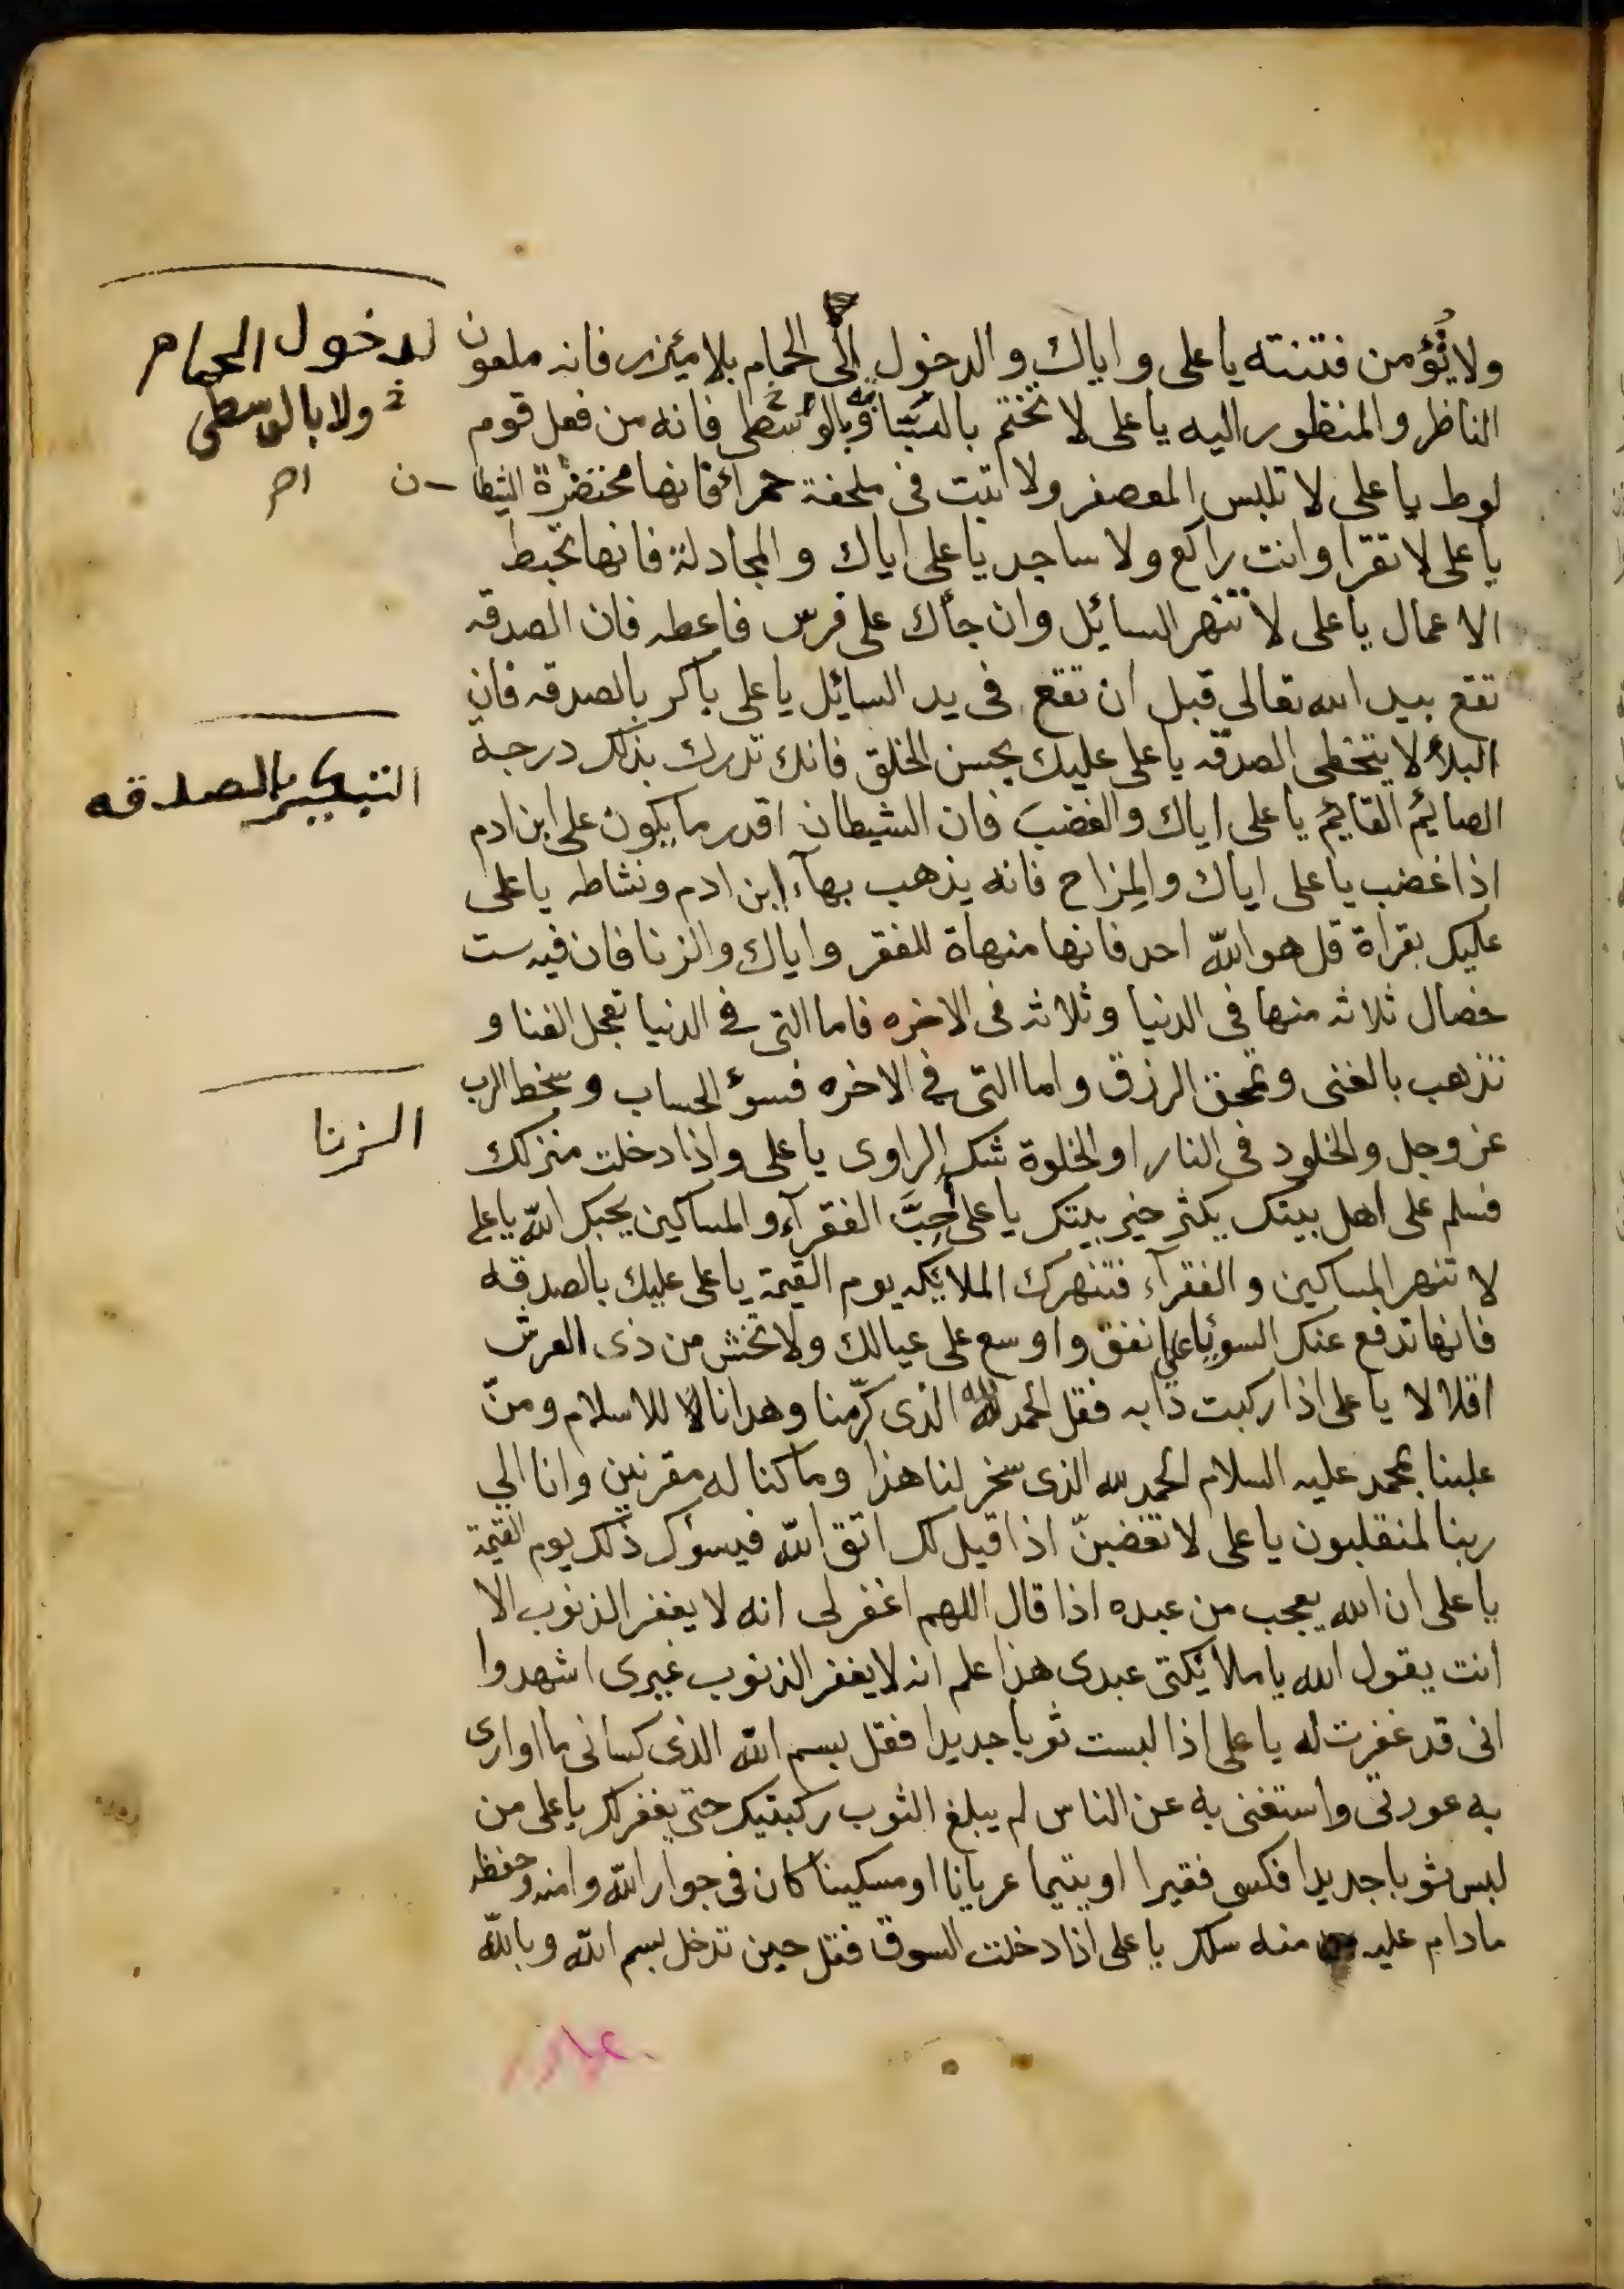 ولا تؤمن فتنته يا على واياك والدخول الى الحمام بلا ميئزر فانه ملعون
الناظر والمنظور اليه يا على لا تختم بالسبابة وبالوسطى فانه من فعل قوم
لوط يا على لا تلبس المعصفر ولا تبت فى ملحفة حمرآء فانها محتضرة الشيطان
يا على لا تقرا وانت راكع ولا ساجد يا على اياك والمجادلة فانها تحبط
الاعمال يا على لا تنهر السايئل وان جآك على فرس فاعطه فان الصدقه
تقع بيد الله تعالى قبل ان تقع فى يد السايئل يا على باكر بالصدقه فان
البلاء لا يتخطى الصدقه يا على عليك بحسن الخلق فانك تدرك بذلك درجة
الصايئم القايئم يا على اياك والغضب فان الشيطان اقدر ما يكون على ابن ادم
اذا غضب يا على اياك والمزاح فانه يذهب بهآء ابن ادم ونشاطه يا على
عليك بقراة قل هو الله احد فانها منهاة للفقر واياك والزنا فان فيه ست
خصال ثلاثه منها فى الدنيا وثلاثه فى الاخره فاما التى فى الدنيا تعجل الفنا و
تذهب بالغنى وتمحق الرزق واما التى فى الاخره فسوء الحساب وسخط الرب
عز وجل والخلود فى النار او الخلوة شك الراوى يا على واذا دخلت منزلك
فسلم على اهل بيتك يكثر خير بيتك يا على احب الفقرآء والمساكين يحبك الله يا على
لا تنهر المساكين والفقرآء فتنهرك الملايئكه يوم القيمة يا على عليك بالصدقه
فانها تدفع عنك السوء يا على انفق واوسع على عيالك ولا تخش من ذى العرش
اقلالا يا على اذا ركبت دابه فقل الحمد لله الذى كرّمنا وهدانا للاسلام ومنّ
علينا بمحمد عليه السلام الحمد لله الذى سخر لنا هذا وما كنا له مقرنين وانا الى
ربنا لمنقلبون يا على لا تغضبنّ اذا قيل لك اتق الله فيسوك ذلك يوم القيمة
يا على ان الله يعجب من عبده اذا قال اللهم اغفر لى انه لا يغفر الذنوب الا
انت يقول الله يا ملايئكتى عبدى هذا علم انه لا يغفر الذنوب غيرى اشهدوا
انى قد غفرت له يا على اذا لبست ثوبا جديدا فقل بسم الله الذى كسانى ما اوارى
به عورتى واستغنى به عن الناس لم يبلغ الثوب ركبتيك حتى يغفر لك يا على من
لبس ثوبا جديدا فكسى فقيرا او يتيما عريانا او مسكينا كان فى جوار الله وامنه وحفظه
مادام عليه منه سلك يا على اذا دخلت السوق فقل حين تدخل بسم الله وبالله
لدخول الحمام
ولا بالوسطى
اصر
التبكير بالصدقه
الزنا